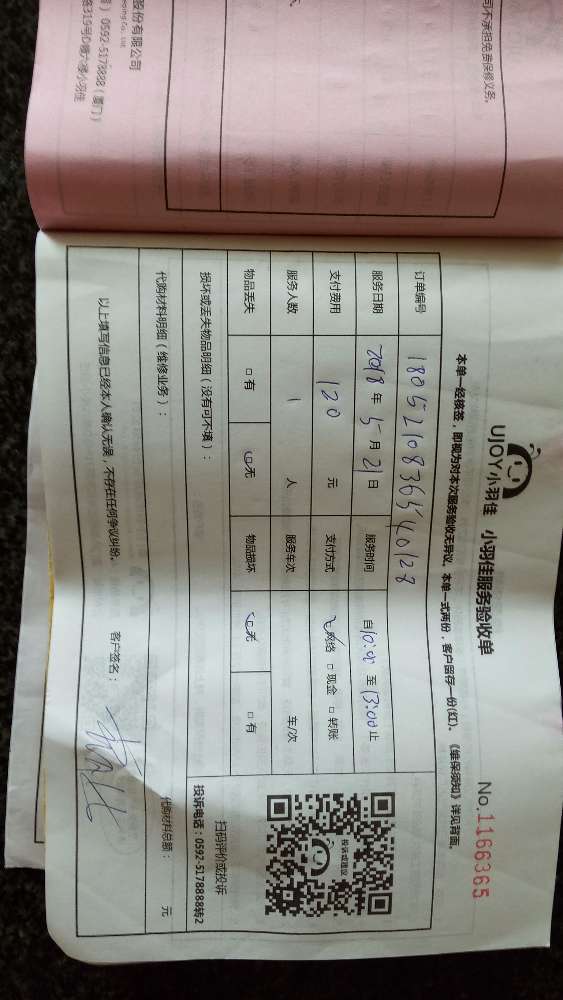 司不承担免费保修义务。
股份有限公司
eeping Co., Ltd.
) 0592-5178888 (厦门)
路319号D幢六楼小羽佳
UJOY小羽佳 小羽佳服务验收单
No.1166365
本单一经核签，即视为对本次服务验收无异议。本单一式两份，客户留存一份(红)。《维保须知》详见背面。
订单编号 18052108365540128
服务日期 2018年5月21日 服务时间 自10:00至13:00止
支付费用 120元 支付方式 网络 □现金 □转账
服务人数 1人 服务车次 车/次
物品丢失 □有 □无 物品损坏 □无 □有
损坏或丢失物品明细（没有可不填）：
投诉或建议
扫码评价或投诉
投诉电话：0592-5178888转2
代购材料明细（维修业务）：
代购材料总额： 元
以上填写信息已经本人确认无误，不存在任何争议纠纷。
客户签名：